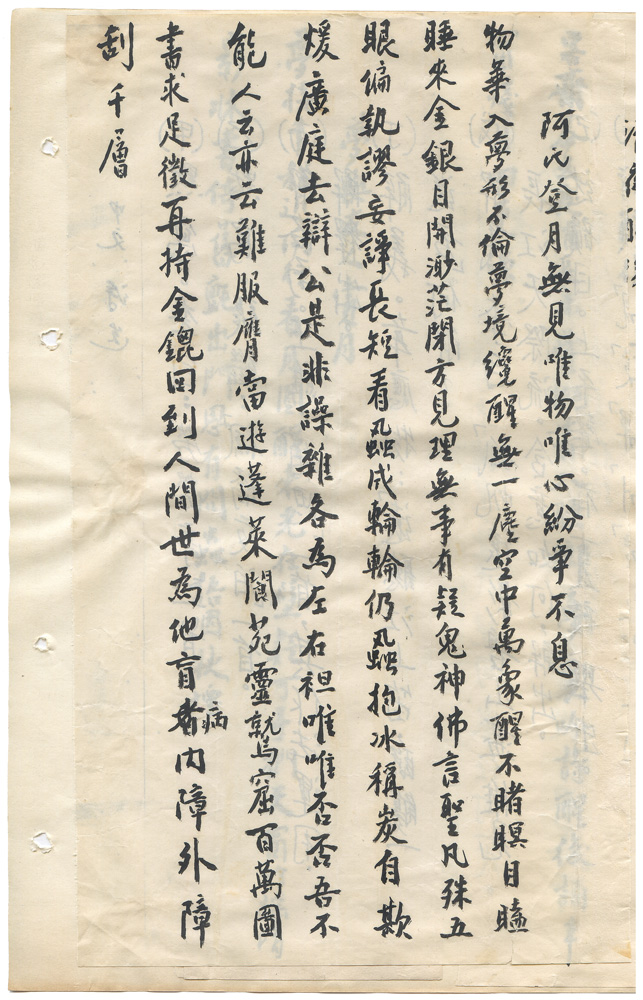 阿氏登月無見唯物唯心紛爭不息
物華入夢形不倫夢境纔醒無一塵空中萬象醒不睹瞑目瞌
睡來金銀目開渺茫閉方見理無事有疑鬼神佛言聖凡殊五
眼偏執謬妄諍長短看蟲成輪輪仍蟲抱冰稱炭自欺
煖廣庭去辯公是非譟雜各為左右袒唯唯否否吾不
能人云亦云難服膺當遊蓬萊閬苑靈鷲窟百萬圖
書求足徵再持金鎞回到人間世為他盲者病內障外障
刮千層